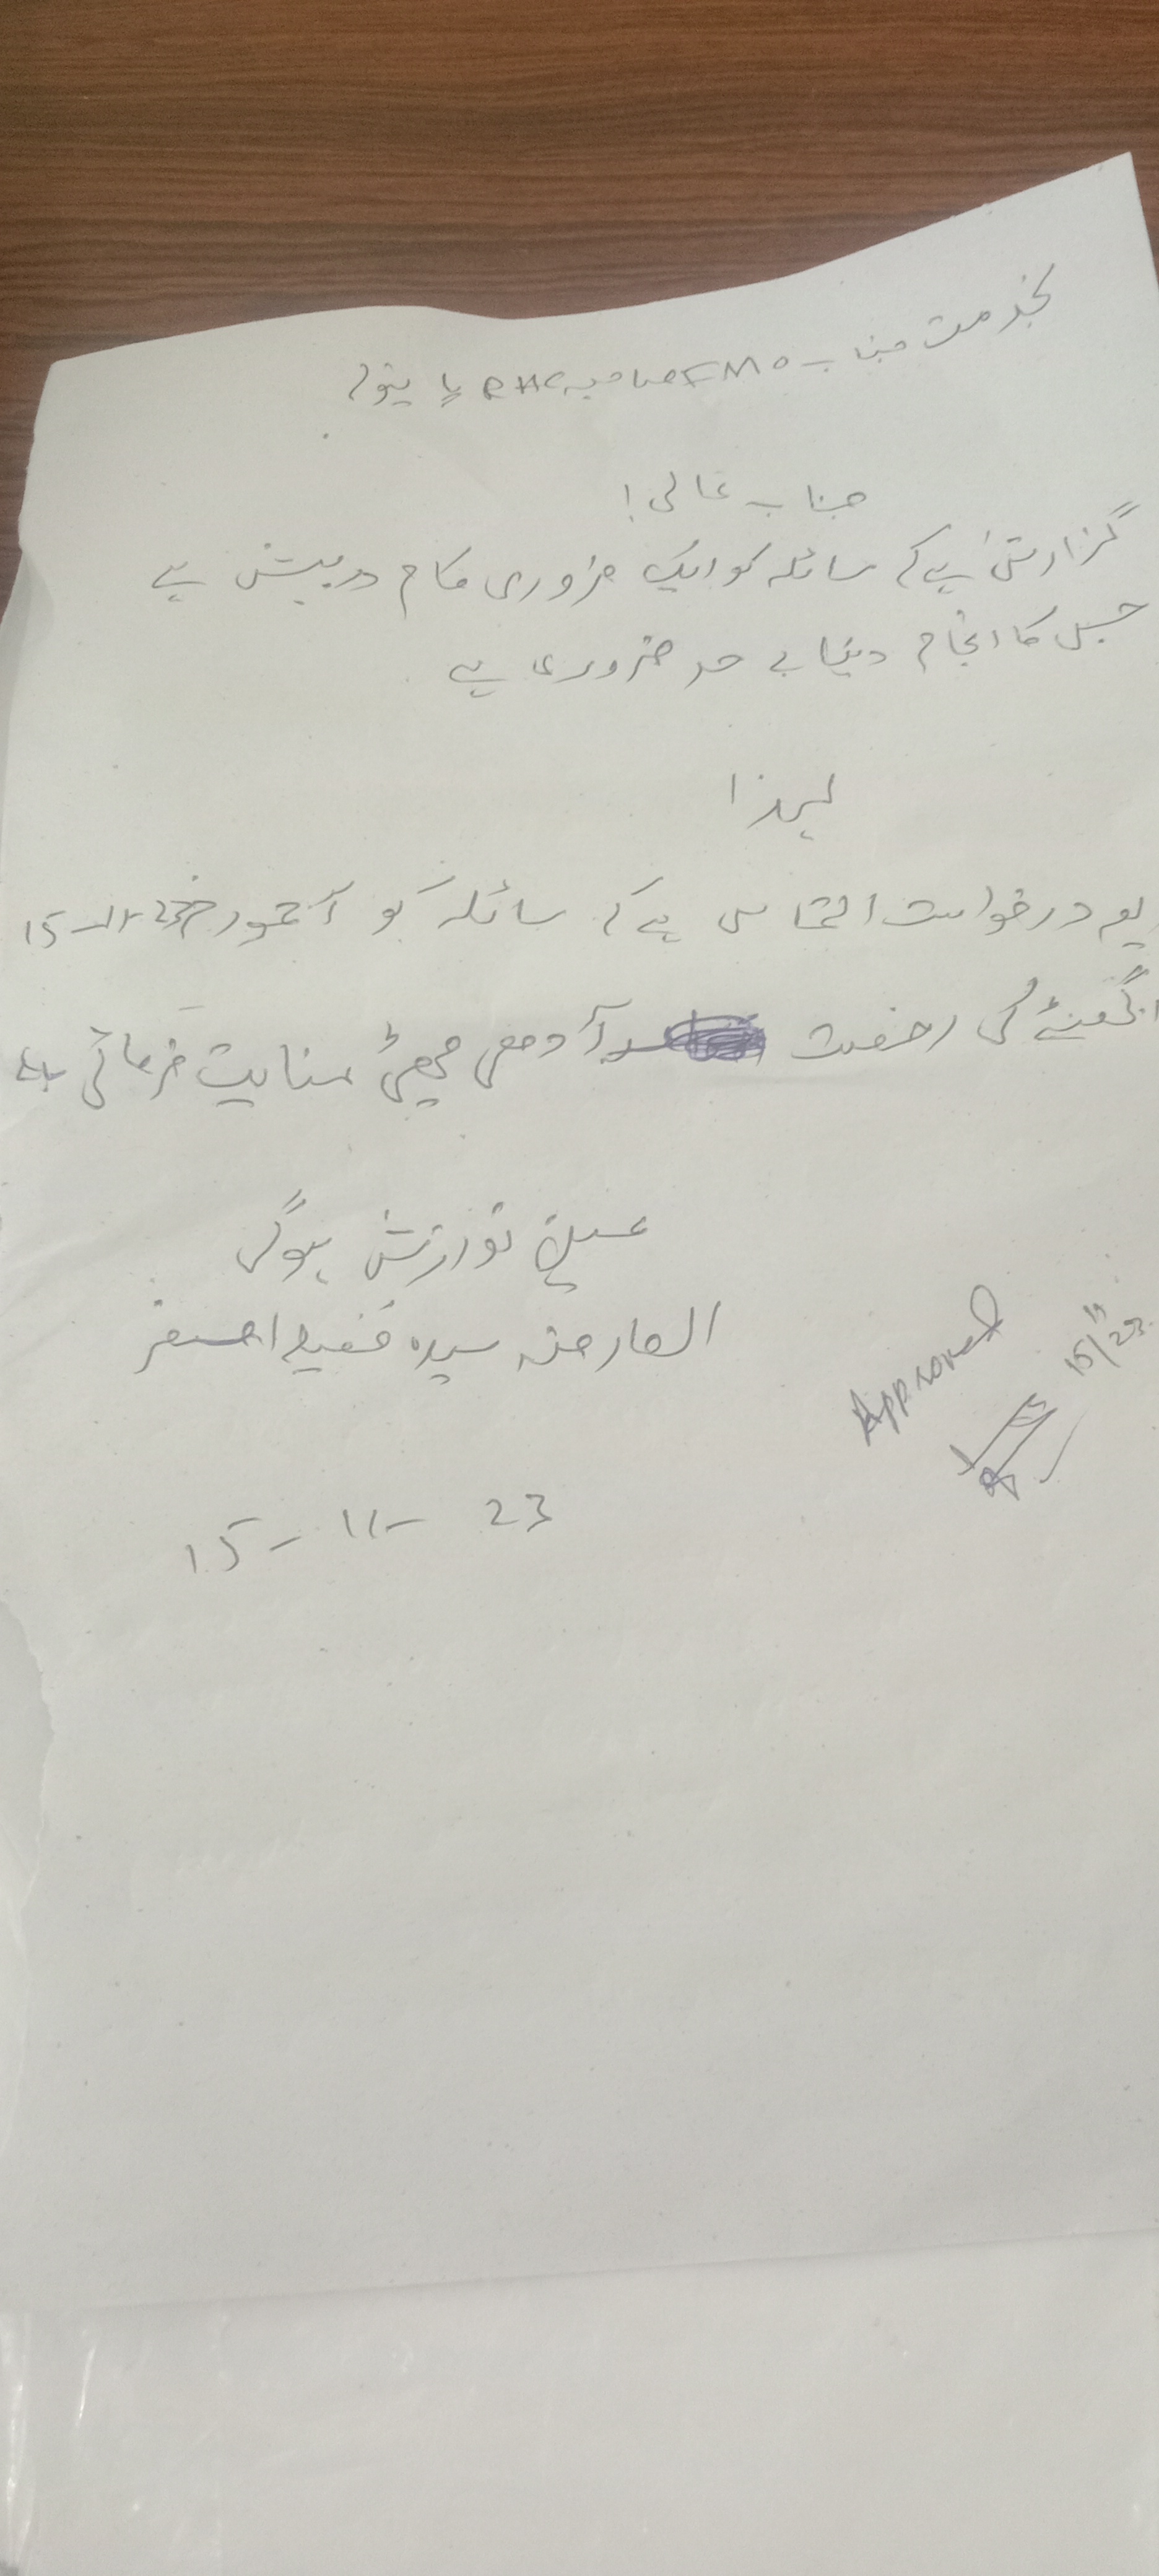 بخدمت جناب FMO صاحبہ RHC
جناب عالی!
گزارش ہے کہ سائلہ کو ایک ضروری کام درپیش ہے
جس کا انجام دینا بے حد ضروری ہے
لہذا
درخواست التماس ہے کہ سائلہ کو آج مورخہ 15-11-23
گھنٹے کی رخصت آدھی چھٹی عنایت فرمائی جائے
عین نوازش ہوگی
العارضہ سیدہ
Approved
15/11/23
15-11-23